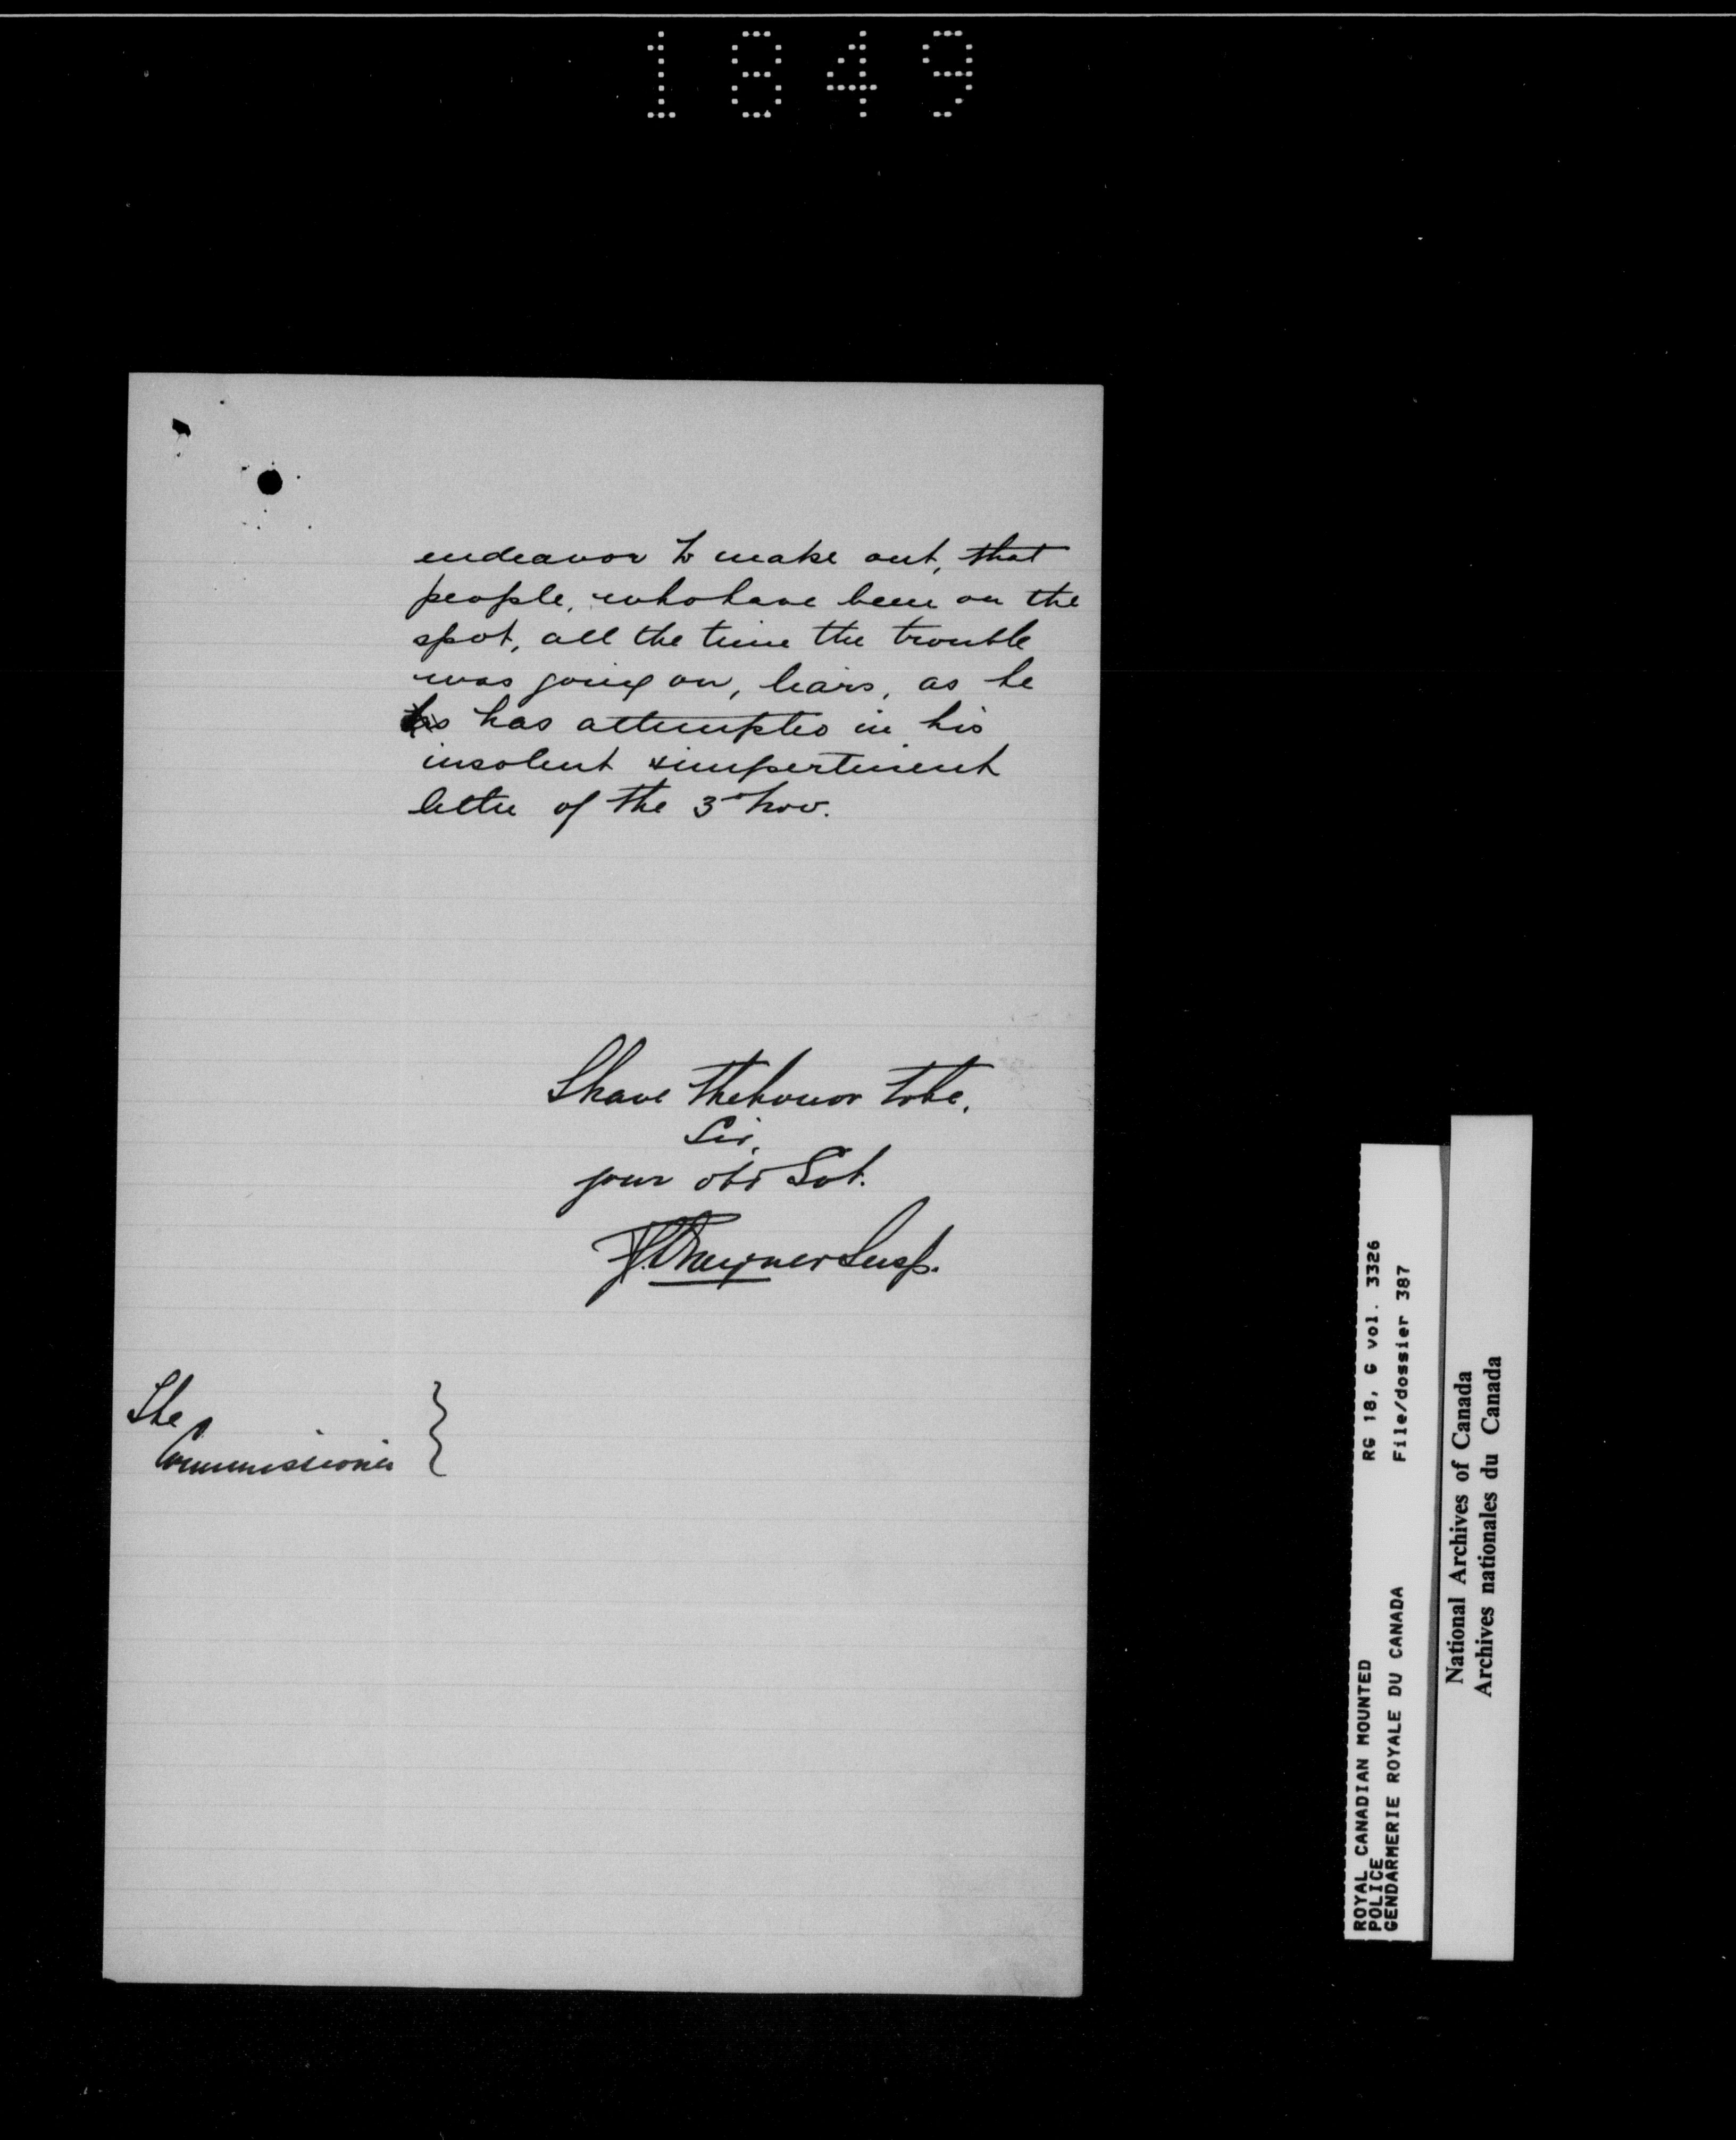 1849
endeavor to make out, that
people, who have been on the
spot, all the time the trouble
was going on, liars, as he
has attempted in his
insolent & impertinent
letter of the 3rd Nov.
I have the honor to be,
Sir,
your obt Svt.
Insp.
The
Commissioner
ROYAL CANADIAN MOUNTED RG 18, G vol. 3326
POLICE
GENDARMERIE ROYALE DU CANADA File/dossier 387
National Archives of Canada
Archives nationales du Canada